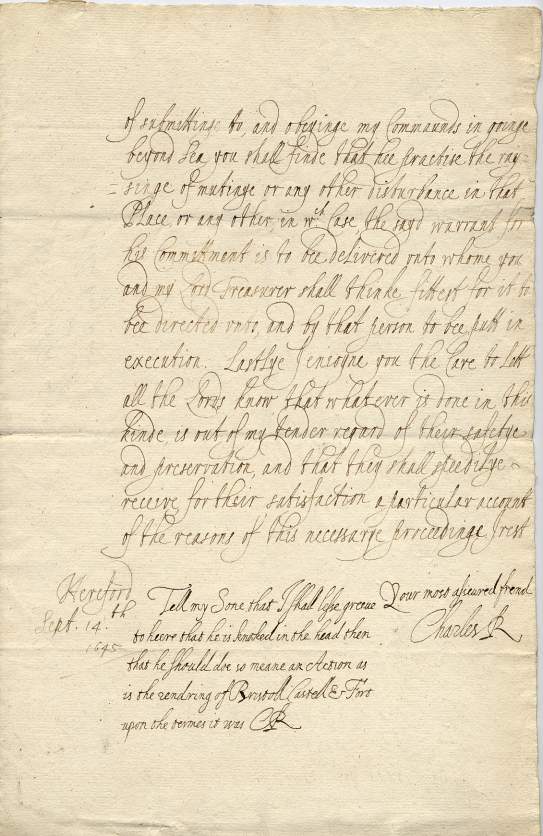 of submittinge to, and obeyinge my Commaunds in goinge
beyond Sea you shall finde that hee practise the ray=
=singe of mutinye or any other disturbance in that
Place, or any other, in wch Case, the sayd warrant for
his Committment is to bee delivered onto whome you
and my Lord Treasurer shall thinke fittest for it to
bee directed vnto, and by that person to bee putt in
execution. Lastlye I enioyne you the Care to Lett
all the Lords know that whatever is done in this
kinde, is out of my tender regard of their safetye
and preservation, and that they shall speedilye
receive for their satisfaction a particular account
of the reasons of this necessarye proceedinge I rest
Your most asseured frend
Charles R
Hereford
Sept. 14th
1645
Tell my Sone that I shall lesse greeue
to heere that he is knoked in the head then
that he should doe so meane an Action as
is the rendring of Bristoll Castell & Fort
upon the termes it was CR